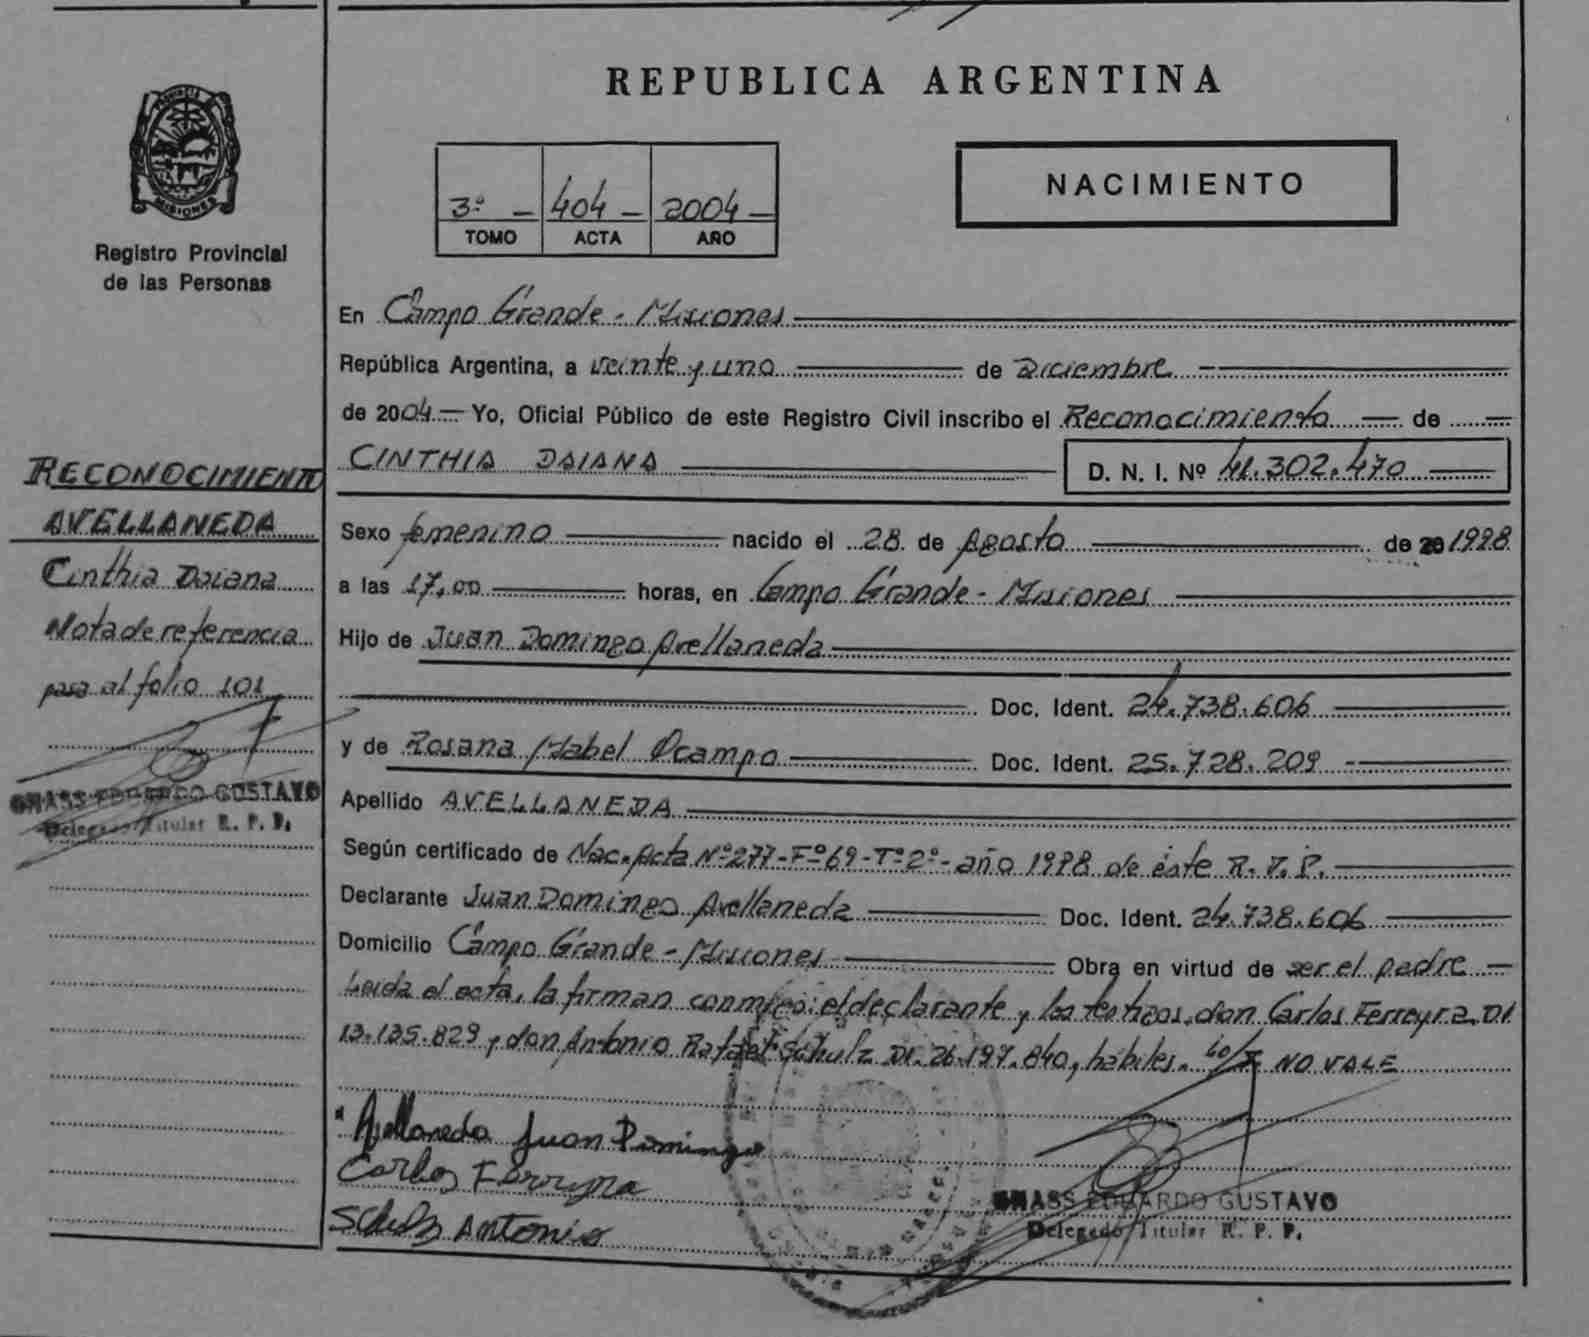 REPUBLICA ARGENTINA
PROVINCIA
MISIONES
Registro Provincial
de las Personas
3º - 404 - 2004 -
TOMO ACTA AÑO
NACIMIENTO
En Campo Grande - Misiones
República Argentina, a veinte y uno de Diciembre
de 2004 Yo, Oficial Público de este Registro Civil inscribo el Reconocimiento de
CINTHIA DAIANA D. N. I. Nº 41.302.470
Sexo femenino nacido el 28 de Agosto de 20 1998
a las 17,00 horas, en Campo Grande - Misiones
Hijo de Juan Domingo Avellaneda
Doc. Ident. 24.738.606
y de Rosana Mabel Ocampo Doc. Ident. 25.728.209
Apellido AVELLANEDA
Según certificado de Nac. Acta Nº 277-Fº 69-Tº 2º - año 1998 de éste R. P. P.
Declarante Juan Domingo Avellaneda Doc. Ident. 24.738.606
Domicilio Campo Grande - Misiones Obra en virtud de ser el padre
Leída el acta, la firman conmigo: el declarante y los testigos, don Carlos Ferreyra, DI
13.135.829 y don Antonio Rafael Schulz DI. 26.197.840, hábiles. NO VALE
Avellaneda Juan Domingo
Carlos Ferreyra
Schulz Antonio
GNASS EDUARDO GUSTAVO
Delegado Titular R. P. P.
RECONOCIMIENTO
AVELLANEDA
Cinthia Daiana
Nota de referencia
pasa al folio 101
GNASS EDUARDO GUSTAVO
Delegado Titular R. P. P.